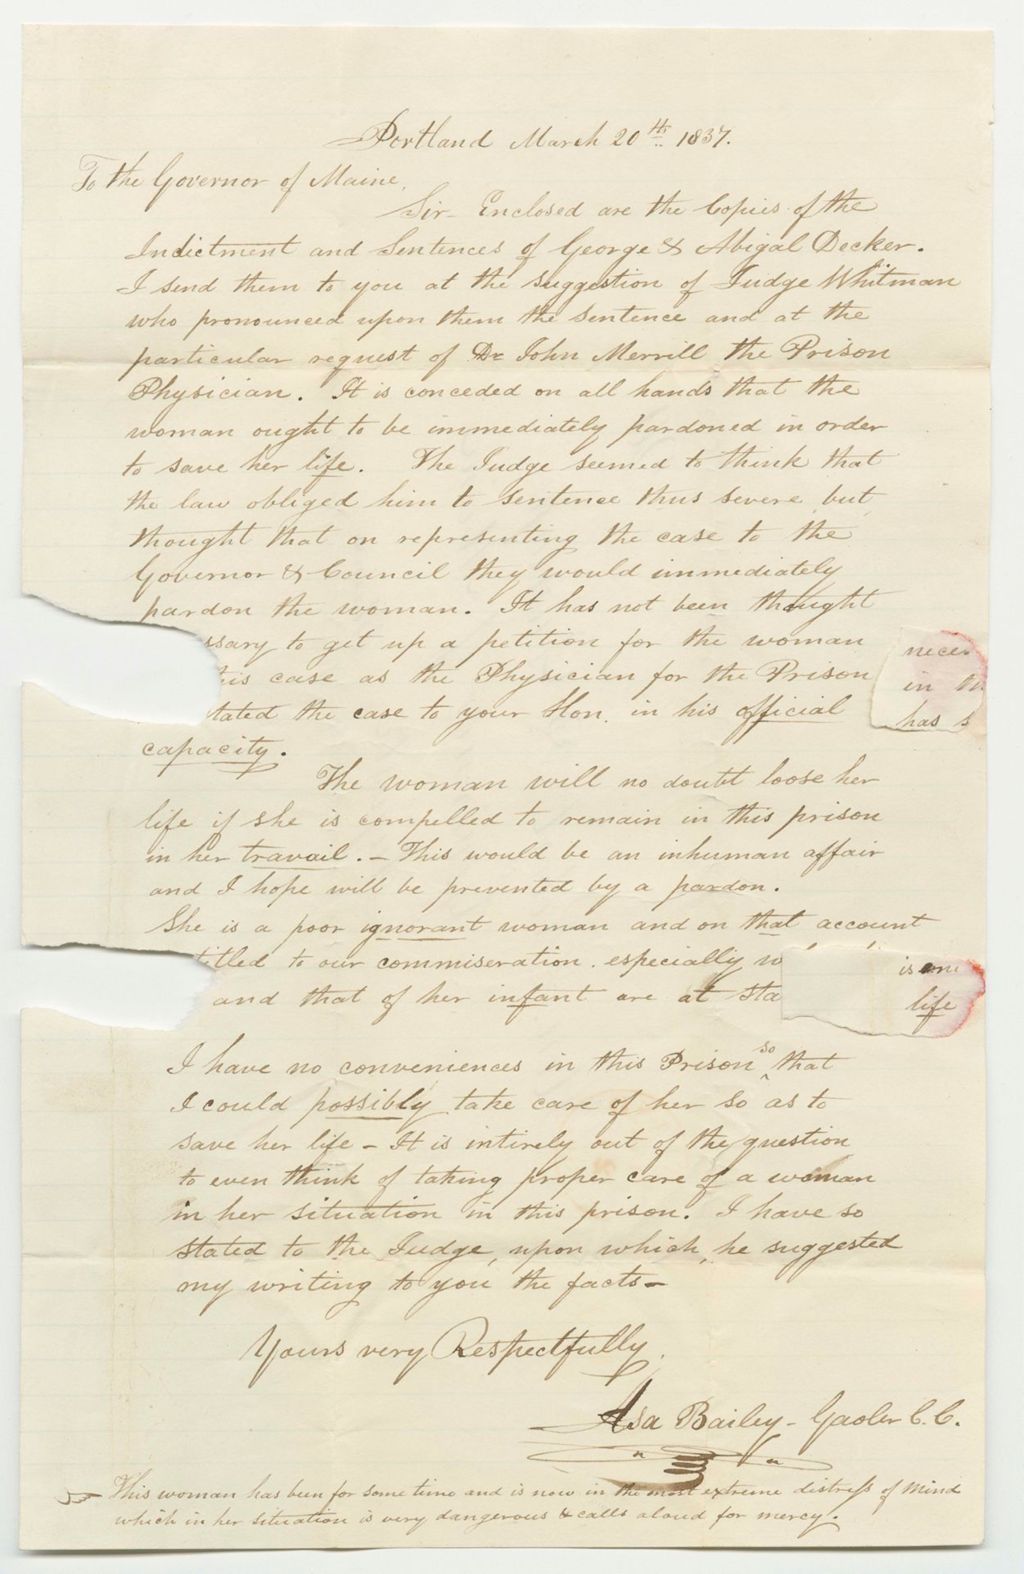 Portland March 20th 1837.
To the Governor of Maine.
Sir - Enclosed are the Copies of the
Indictment and Sentences of George & Abigal Decker.
I send them to you at the suggestion of Judge Whitman
who pronounced upon them the sentence and at the
particular request of Dr John Merrill the Prison
Physician. It is conceded on all hands that the
woman ought to be immediately pardoned in order
to save her life. The Judge seemed to think that
the law obliged him to sentence thus severe but
thought that on representing the case to the
Governor & Council they would immediately
pardon the woman. It has not been thought
ssary to get up a petition for the woman neces
is case as the Physician for the Prison in th
tated the case to your Hon. in his official has s
capacity.
The woman will no doubt loose her
life if she is compelled to remain in this prison
in her travail. - This would be an inhuman affair
and I hope will be prevented by a pardon.
She is a poor ignorant woman and on that account
titled to our commiseration. especially is
and that of her infant are at sta life
I have no conveniences in this Prison so that
I could possibly take care of her so as to
save her life - It is intirely out of the question
to even think of taking proper care of a woman
in her situation in this prison. I have so
stated to the Judge, upon which, he suggested
my writing to you the facts -
Yours very Respectfully.
Asa Bailey - Gaoler C.C.
This woman has been for some time and is now in the most extreme distress of Mind
which in her situation is very dangerous & calls aloud for mercy.